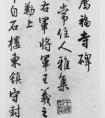 福寺碑
常住人雅集
右軍將軍王羲之
勒上
白石樓東鎮守封